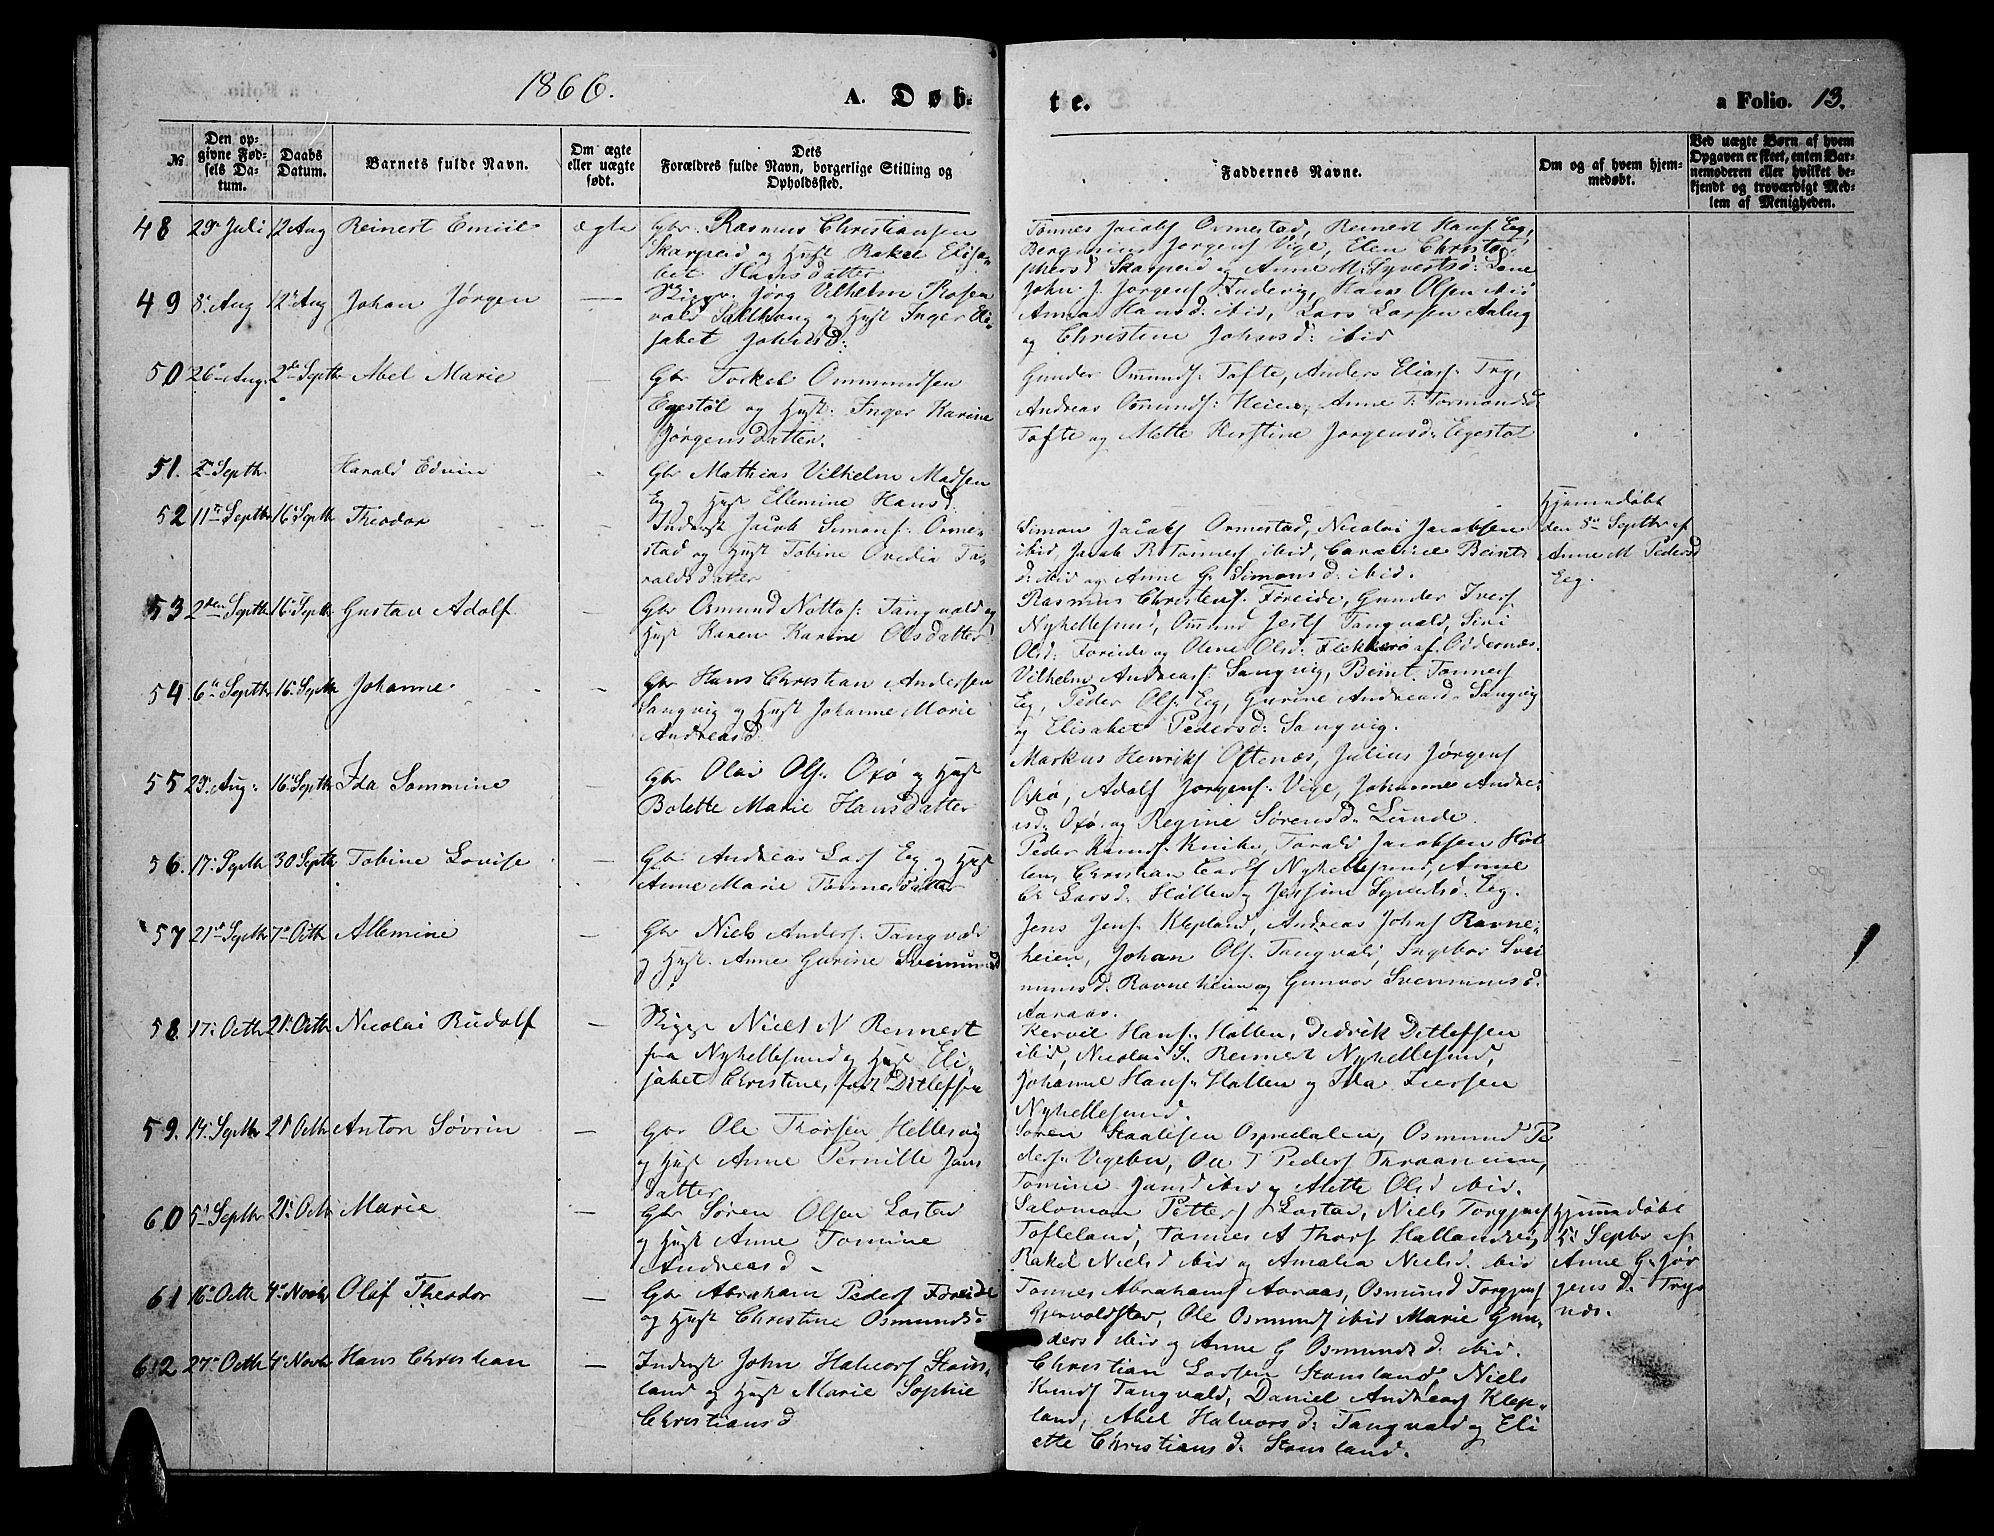 1866.
A. Døb-
te.
a Folio. 13.
№
Den op-
givne Fød-
sels Da-
tum.
Daabs
Datum.
Barnets fulde Navn.
Om ægte
eller uægte
født.
Dets
Forældres fulde Navn, borgerlige Stilling og
Opholdssted.
Faddernes Navne.
Om og af hvem hjem-
medøbt.
Ved uægte Børn af hvem
Opgaven er skeet, enten Bar-
nemoderen eller hvilket be-
kjendt og troværdigt Med-
lem af Menigheden.
48 29 Juli 12 Aug Reinert Emiil ægte Gbr. Rasmus Christiansen
Skarpeid og Hust Rakel Elisa-
bet Hansdatter
Tønnes Jacobs Ormestad, Reinert Hans Eeg,
Jørgens Vige, Elen Christo-
phersd Skarpeid og Anne M. Syvertsd: Lone
49 8 Aug 12 Aug Johan Jørgen Jørg Vilhelm Rosen
vald og Hust Inger Eli-
sabet Johnsd:
John J. Jørgens Hans Olsen ibid
Anna Hansd: ibid, Lars Larsen
og Christine Johnsd: ibid
50 26 Aug. 2 Septb Abel Marie Gbr Torkel Ommundsen
Egestøl og Hust: Inger Karine
Jørgensdatter.
Gunder Omunds: Tofte, Anders Elias: Try,
Andreas Omunds: Heien, Anne T: Tormodsd
Tofte og Mette Kirstine Jørgensd: Egestøl
51. 2 Septb. Harald Edvin Gbr Mathias Vilhelm Madsen
Eg og Hust Ellemine Hansd:
52 11 Septb 16 Septb Theodor Inderst Jacob Simons: Orme-
stad og Hust Tobine Ovedia Ta-
raldsdatter
Simon Jacobs Ormestad, Nicolai Jacobsen
ibid, Jacob B. Tønnes ibid, Caroline Beints
d: ibid og Anne G. Simonsd: ibid.
Hjemmedøbt
den 5 Septbr af
Anne M Pedersd
Eeg.
53 2den Septb 16 Septb Gustav Adolf Gbr Osmund Nottos: Tangvald og
Hust Karen Karine Olsdatter
Rasmus Christens: Føreide, Gunder Ivers
Nyhellesund, Omund Tangvald, Siri
Olsd: Foreide og Olene Olsd: Flekkerø af Oddernes.
54. 6 Septb 16 Septb Johanne Gbr Hans Christian Andersen
Sangvig og Hust Johanne Marie
Andreasd
Vilhelm Andreas: Sangvig, Beint Tønnes
Eg, Peder Ols: Eeg, Gurine Andreasd: Sangvig
og Elisabet Pedersd: Sangvig.
55 29 Aug: 16 Septb Ida Sommine Gbr Olai Ols: Oxø og Hust
Bolette Marie Hansdatter
Markus Henriks Oftenæs, Julius Jørgens
Oxø, Adolf Jørgens: Vige, Johannes Andre-
Oxø og Regine Sørensd: Lunde.
56. 17 Septb 30 Septb Tobine Lovise Gbr Andreas Lars Eeg og Hust
Anne Marie Tønnesdatter
Peder Knuds: Knibe, Tarald Jacobsen Hol-
len, Christian Carls Nyhellesund, Anne
C. Larsd: Hollen og Jensine Syvertsd: Eeg.
57 21 Septb 7 Octb Allemine Gbr Niels Anders: Tangvald
og Hust. Anne Gurine Sveinund
Jens Jens: Klepland, Andreas Johns Ravne-
heien, Johan Ols. Tangvald, Ingebor Svei
Ravneheien og Gunvor
Aaraas.
58. 17 Octb 21 Octb Nicolai Rudolf Niels N Reinert
fra Nyhellesund og Hust Eli-
sabet Christine, født Detleffsen
Hans: Hollen, Dedrik Detleffsen
ibid, Nicolai S. Reinert Nyhellesund,
Johanne Hans: Hollen og Ida Iversen
Nyhellesund.
59. 14 Septb 21 Octb Anton Søvrin Gbr Ole Thorsen Hellevig
og Hust Anne Pernille Jans
datter
Søren Staalesen Ospedalen, Osmund Pe
ders: Vigebu, Ole T Peders
Tomine Jansd ibid og Mette Olsd ibid.
60 5 Septb 21 Octb Marie Gbr Søren Olsen Lastad
og Hust Anne Tomine
Andreasd
Salomon Petters Lastad, Niels Torgjus
Tofteland, Tønnes A Thors Hallandvig
Rakel Nielsd ibid og Amalia Nielsd. ibid
Hjemmedøbt
5 Septbr af
Anne G. Jør
gensd. Trys
næs.
61 16 Octb 4 Novb Olaf Theodor Gbr Abraham Peders Føreide
og Hust Christine Osmundsd
Tønnes Abrahams Aaraas, Osmund Torgjus
Ole Osmunds ibid Marie Gun-
dersd ibid og Anne G Osmundsd. ibid.
62 27 Octb 4 Novb Hans Christian Inderst John Halvors Stous-
land og Hust Marie Sophie
Christiansd
Christian Larsen Stousland, Niels
Knuds Tangvald, Daniel Andreas Klep-
land, Abel Halvorsd: Tangvald og Eli
ette Christiansd. Stousland.